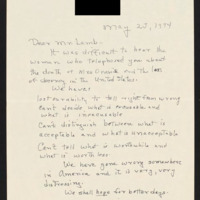 May 25, 1974
Dear Mr. Lamb:
It was difficult to bear the
woman who telephoned you about
the death of Miss and the loss
of decency in the United States.
We have:
Lost our ability to tell right from wrong
Can't decide what is reasonable and
what is unreasonable
Can't distinguish between what is
acceptable and what is unacceptable
Can't tell what is worthwhile and
what is worth
We have gone wrong somewhere
in America and it is very, very
distressing.
We shall hope for better days.